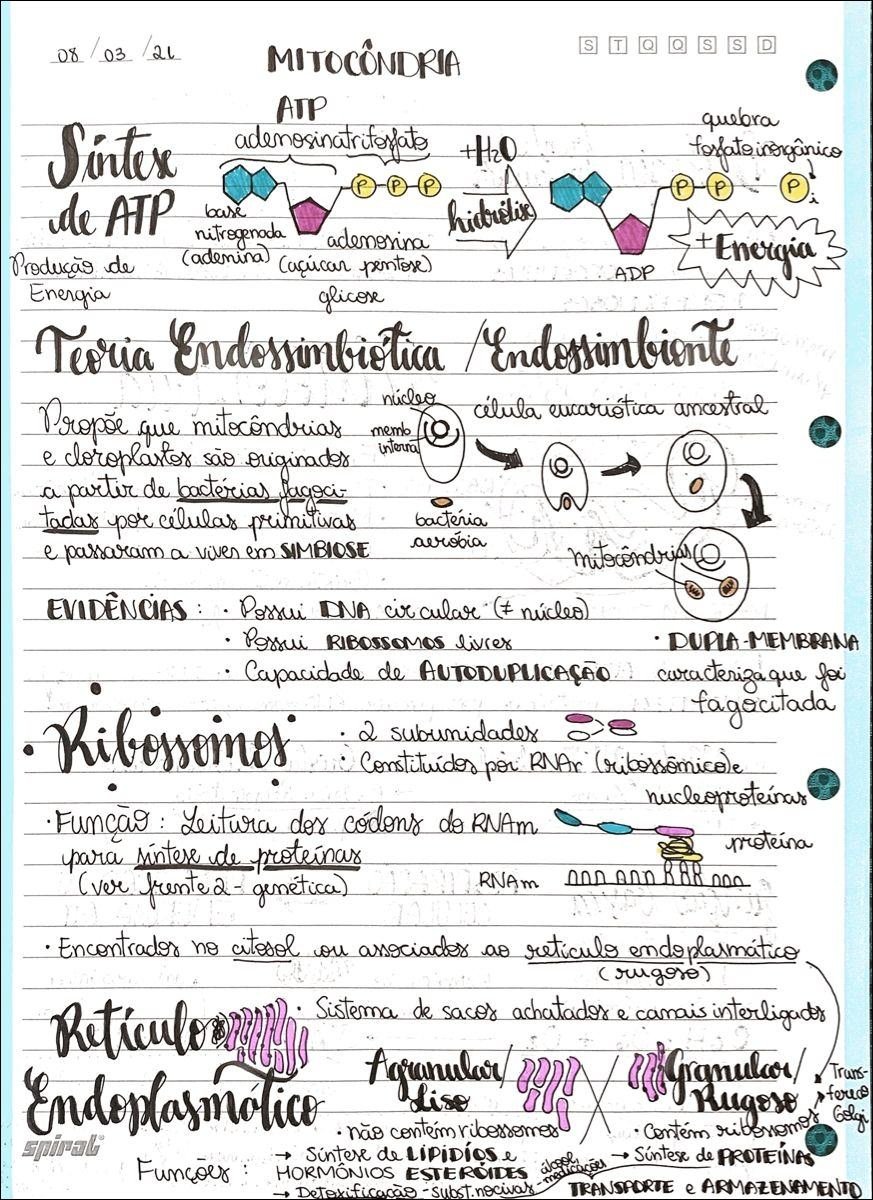 08/03/21
MITOCÔNDRIA
S T Q Q S S D
Síntese de ATP
Produção de Energia
ATP
adenosinatrifosfato
P P P
base nitrogenada (adenina)
adenosina (açúcar pentose)
glicose
+H₂O
hidrólise
quebra
fosfato inorgânico
P P P i
ADP
+ Energia
Teoria Endossimbiótica / Endossimbionte
Propõe que mitocôndrias
e cloroplastos são originados
a partir de bactérias fagoci-
tadas por células primitivas
e passaram a viver em SIMBIOSE
núcleo
memb interna
célula eucariótica ancestral
bactéria aeróbia
mitocôndrias
EVIDÊNCIAS : · Possui DNA circular (≠ núcleo)
· Possui RIBOSSOMOS livres
· Capacidade de AUTODUPLICAÇÃO
· DUPLA-MEMBRANA
caracteriza que foi
fagocitada
· Ribossomos
· 2 subunidades
· Constituídos por RNAr (ribossômico) e
nucleoproteínas
· Função : Leitura dos códons do RNAm
para síntese de proteínas
(ver frente 2 - genética)
proteína
RNAm
· Encontrados no citosol ou associados ao retículo endoplasmático
(rugoso)
Retículo
Endoplasmático
· Sistema de sacos achatados e canais interligados
Agranular/
Liso
Granular/
Rugoso
Trans-
fere ao
Golgi
· não contém ribossomos
· Contém ribossomos
spiral
Funções :
→ Síntese de LIPÍDIOS e
HORMÔNIOS ESTERÓIDES
→ Detoxificação - subst. nocivas
álcool,
medicações
→ Síntese de PROTEÍNAS
TRANSPORTE e ARMAZENAMENTO